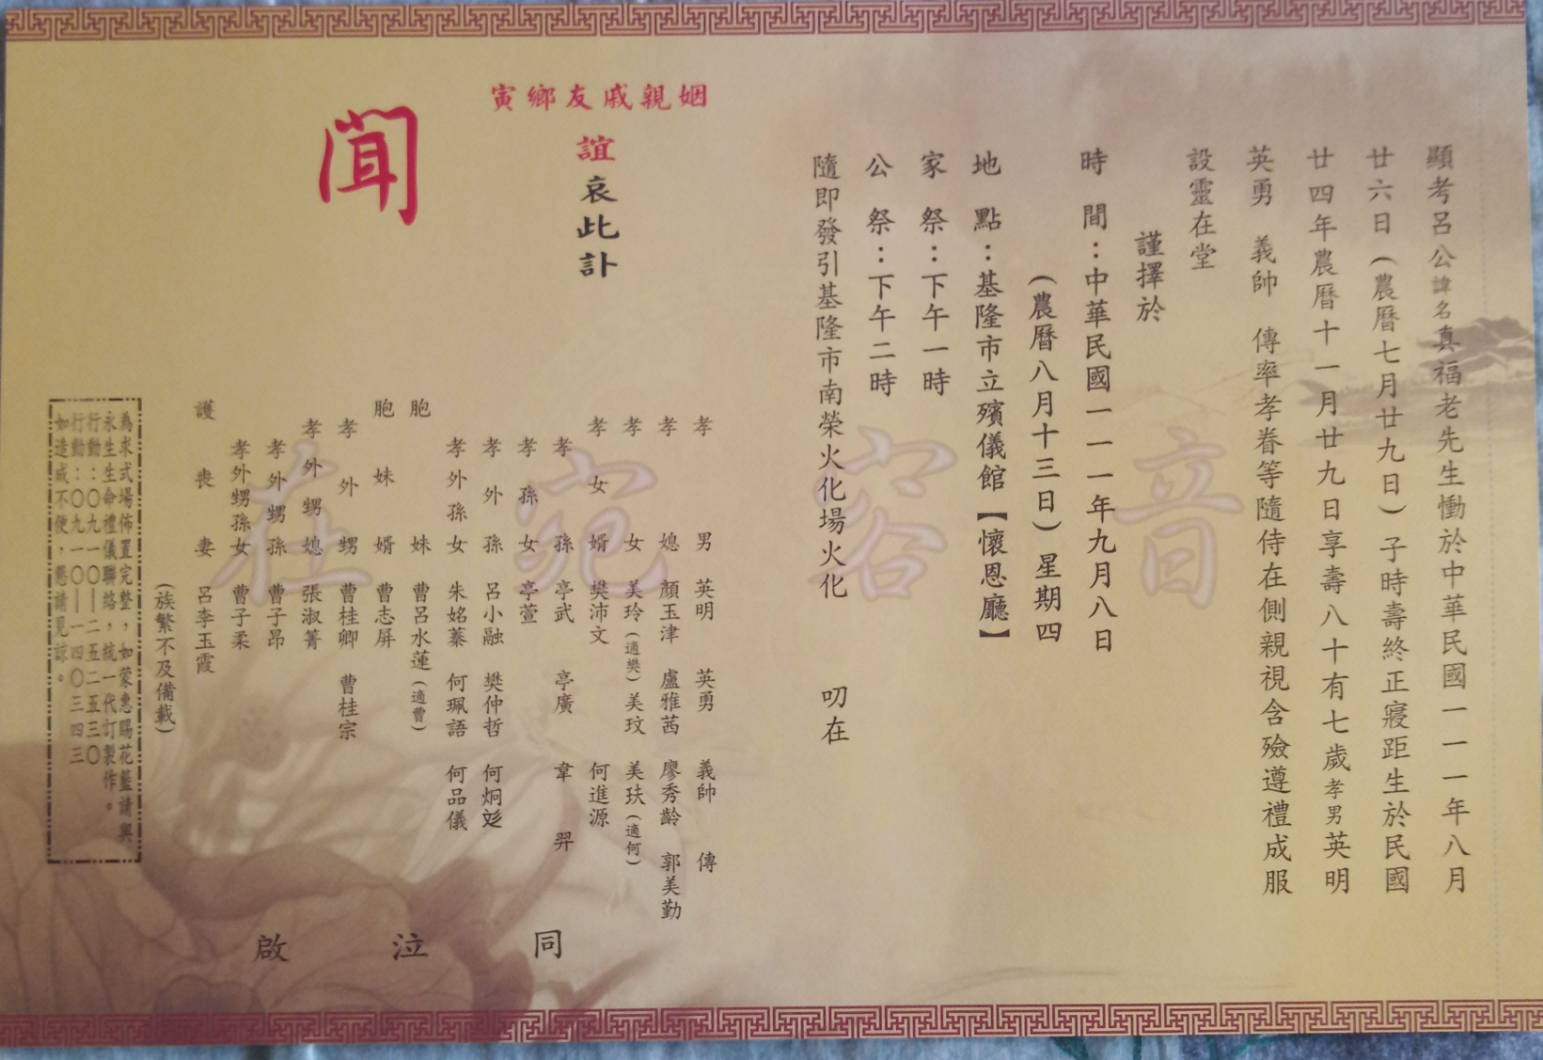 顯考呂公諱名真福老先生慟於中華民國一一一年八月
廿六日(農曆七月廿九日)子時壽終正寢距生於民國
廿四年農曆十一月廿九日享壽八十有七歲孝男英明
英勇 義帥 傳率孝眷等隨侍在側親視含殮遵禮成服
設靈在堂
謹擇於
時間:中華民國一一一年九月八日
(農曆八月十三日)星期四
地點:基隆市立殯儀館【懷恩廳】
家祭:下午一時
公祭:下午二時
隨即發引基隆市南榮火化場火化 叨在
姻親戚友鄉寅
誼哀此訃
聞
孝男 英明 英勇 義帥 傳
孝媳 顏玉津 盧雅茜 廖秀齡 郭美勤
孝女 美玲(適樊) 美玟 美玞(適何)
孝女婿 樊沛文 何進源
孝孫 亭武 亭廣 韋羿
孝孫女 亭萱
孝外孫 呂小融 樊仲哲 何炯彣
孝外孫女 朱姳蓁 何珮語 何品儀
胞妹 曹呂水蓮(適曹)
胞妹婿 曹志屏
孝外甥 曹桂卿 曹桂宗
孝外甥媳 張淑菁
孝外甥孫 曹子昂
孝外甥孫女 曹子柔
護喪妻 呂李玉霞
(族繁不及備載)
同泣啟
為求式場佈置完整,如蒙惠賜花籃請與
永生生命禮儀聯絡,統一代訂製作。
行動:〇九一〇—二五二五三〇
行動:〇九一〇—一四〇三四三
如造成不便,懇請見諒。
音容宛在